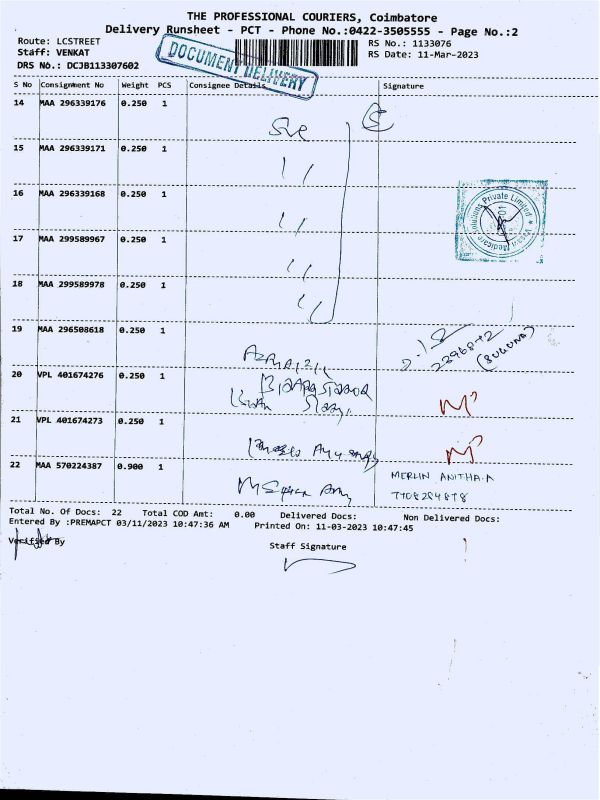 THE PROFESSIONAL COURIERS, Coimbatore
Delivery Runsheet - PCT - Phone No.:0422-3505555 - Page No.:2
Route: LCSTREET
RS No.: 1133076
Staff: VENKAT
RS Date: 11-Mar-2023
DRS No.: DCJB113307602
DOCUMENT DELIVERY
S No Consignment No Weight PCS Consignee Details Signature
14 MAA 296339176 0.250 1
15 MAA 296339171 0.250 1
16 MAA 296339168 0.250 1
17 MAA 299589967 0.250 1
18 MAA 299589978 0.250 1
19 MAA 296508618 0.250 1
20 VPL 401674276 0.250 1
21 VPL 401674273 0.250 1
22 MAA 570224387 0.900 1
MERLIN ANITHA.A
7708284878
Total No. Of Docs: 22 Total COD Amt: 0.00 Delivered Docs: Non Delivered Docs:
Entered By :PREMAPCT 03/11/2023 10:47:36 AM Printed On: 11-03-2023 10:47:45
Verified By
Staff Signature